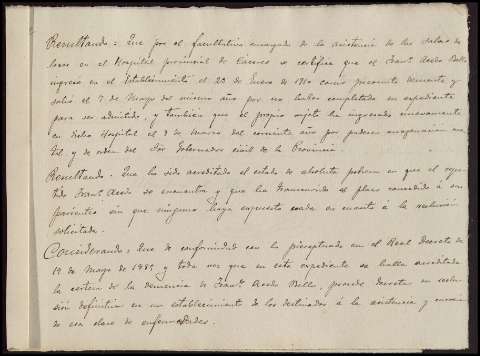 Resultando: Que por el facultativo encargado de la asistencia de las salas de
en el Hospital provincial de se certifica que el Franco Acedo Bello
ingresó en el Establecimiento el 23 de Enero de como presunto demente y
salió el 7 de Mayo del mismo año por no haber completado su expediente
para ser admitido, y también que el propio sujeto ha ingresado nuevamente
en dicho Hospital el 3 de Marzo del corriente año por padecer enagenación men-
tal y de orden del Sor Gobernador civil de la Provincia.
Resultando: Que ha sido acreditado el estado de absoluta pobreza en que el repe-
tido Franco Acedo se encuentra y que ha transcurrido el plazo concedido á sus
parientes sin que ninguno haya expuesto nada en cuanto á la reclusión
solicitada.
Considerando: Que de conformidad con lo preceptuado en el Real Decreto de
19 de Mayo de 1885 y toda vez que en este expediente se halla acreditada
la certeza de la demencia de Franco Acedo Bello, procede decretar su reclu-
sión definitiva en un establecimiento de los destinados á la asistencia y
de esa clase de enfermedades.